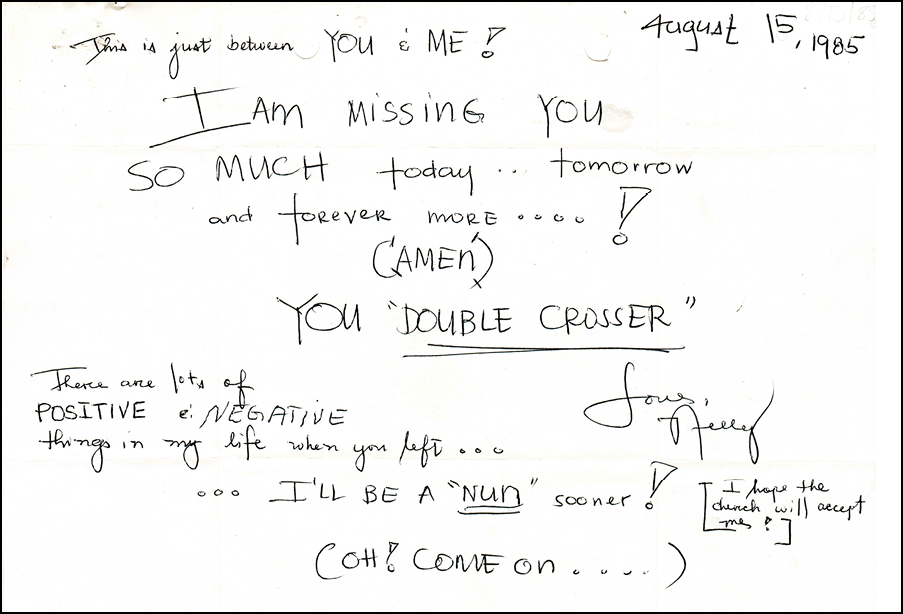 This is just between YOU & ME!
August 15, 1985
I AM MISSING YOU
SO MUCH today .. tomorrow
and forever more ....!
("AMEN")
YOU "DOUBLE CROSSER"
There are lots of
POSITIVE & NEGATIVE
things in my life when you left ...
Love,
Nelly
... I'LL BE A "NUN" sooner!
[I hope the
church will accept
me!]
(OH! COME ON ....)